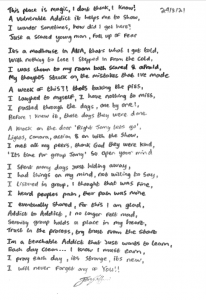 29/3/21
This place is magic, I don't think, I know!
A vulnerable Addict it helps me to show,
I wonder sometimes, how did I get here?
Just a scared young man, full up of fear
Its a madhouse in AllA, thats what I got told,
With nothing to lose I stepped in from the cold,
I was shown to my room both scared & afraid,
My thoughts stuck on the mistakes that I've made
A week of this?! thats baking the piss,
I laughed to myself, I have nothing to miss,
I pushed through the days, one by one!,
Before I knew it, those days they were done.
A knock on the door 'Right Sonny lets go',
with the show,
I met all my peers, thank God they were kind,
'Its time for group Sonny' So open your mind
I spent many days just hiding away,
I had things on my mind, not willing to say,
Listened in group, I thought that was fine,
I heard peoples pain, their pain was mine
I eventually shared, for this I am glad,
Addict to Addict, I no longer felt mad,
Serenity group holds a place in my heart,
Trust in the process, try trust from the start
Im a teachable Addict that Just wants to learn,
Each day clean... I know I must earn,
I pray each day, its strange, its new,
I will never forget any of You!!